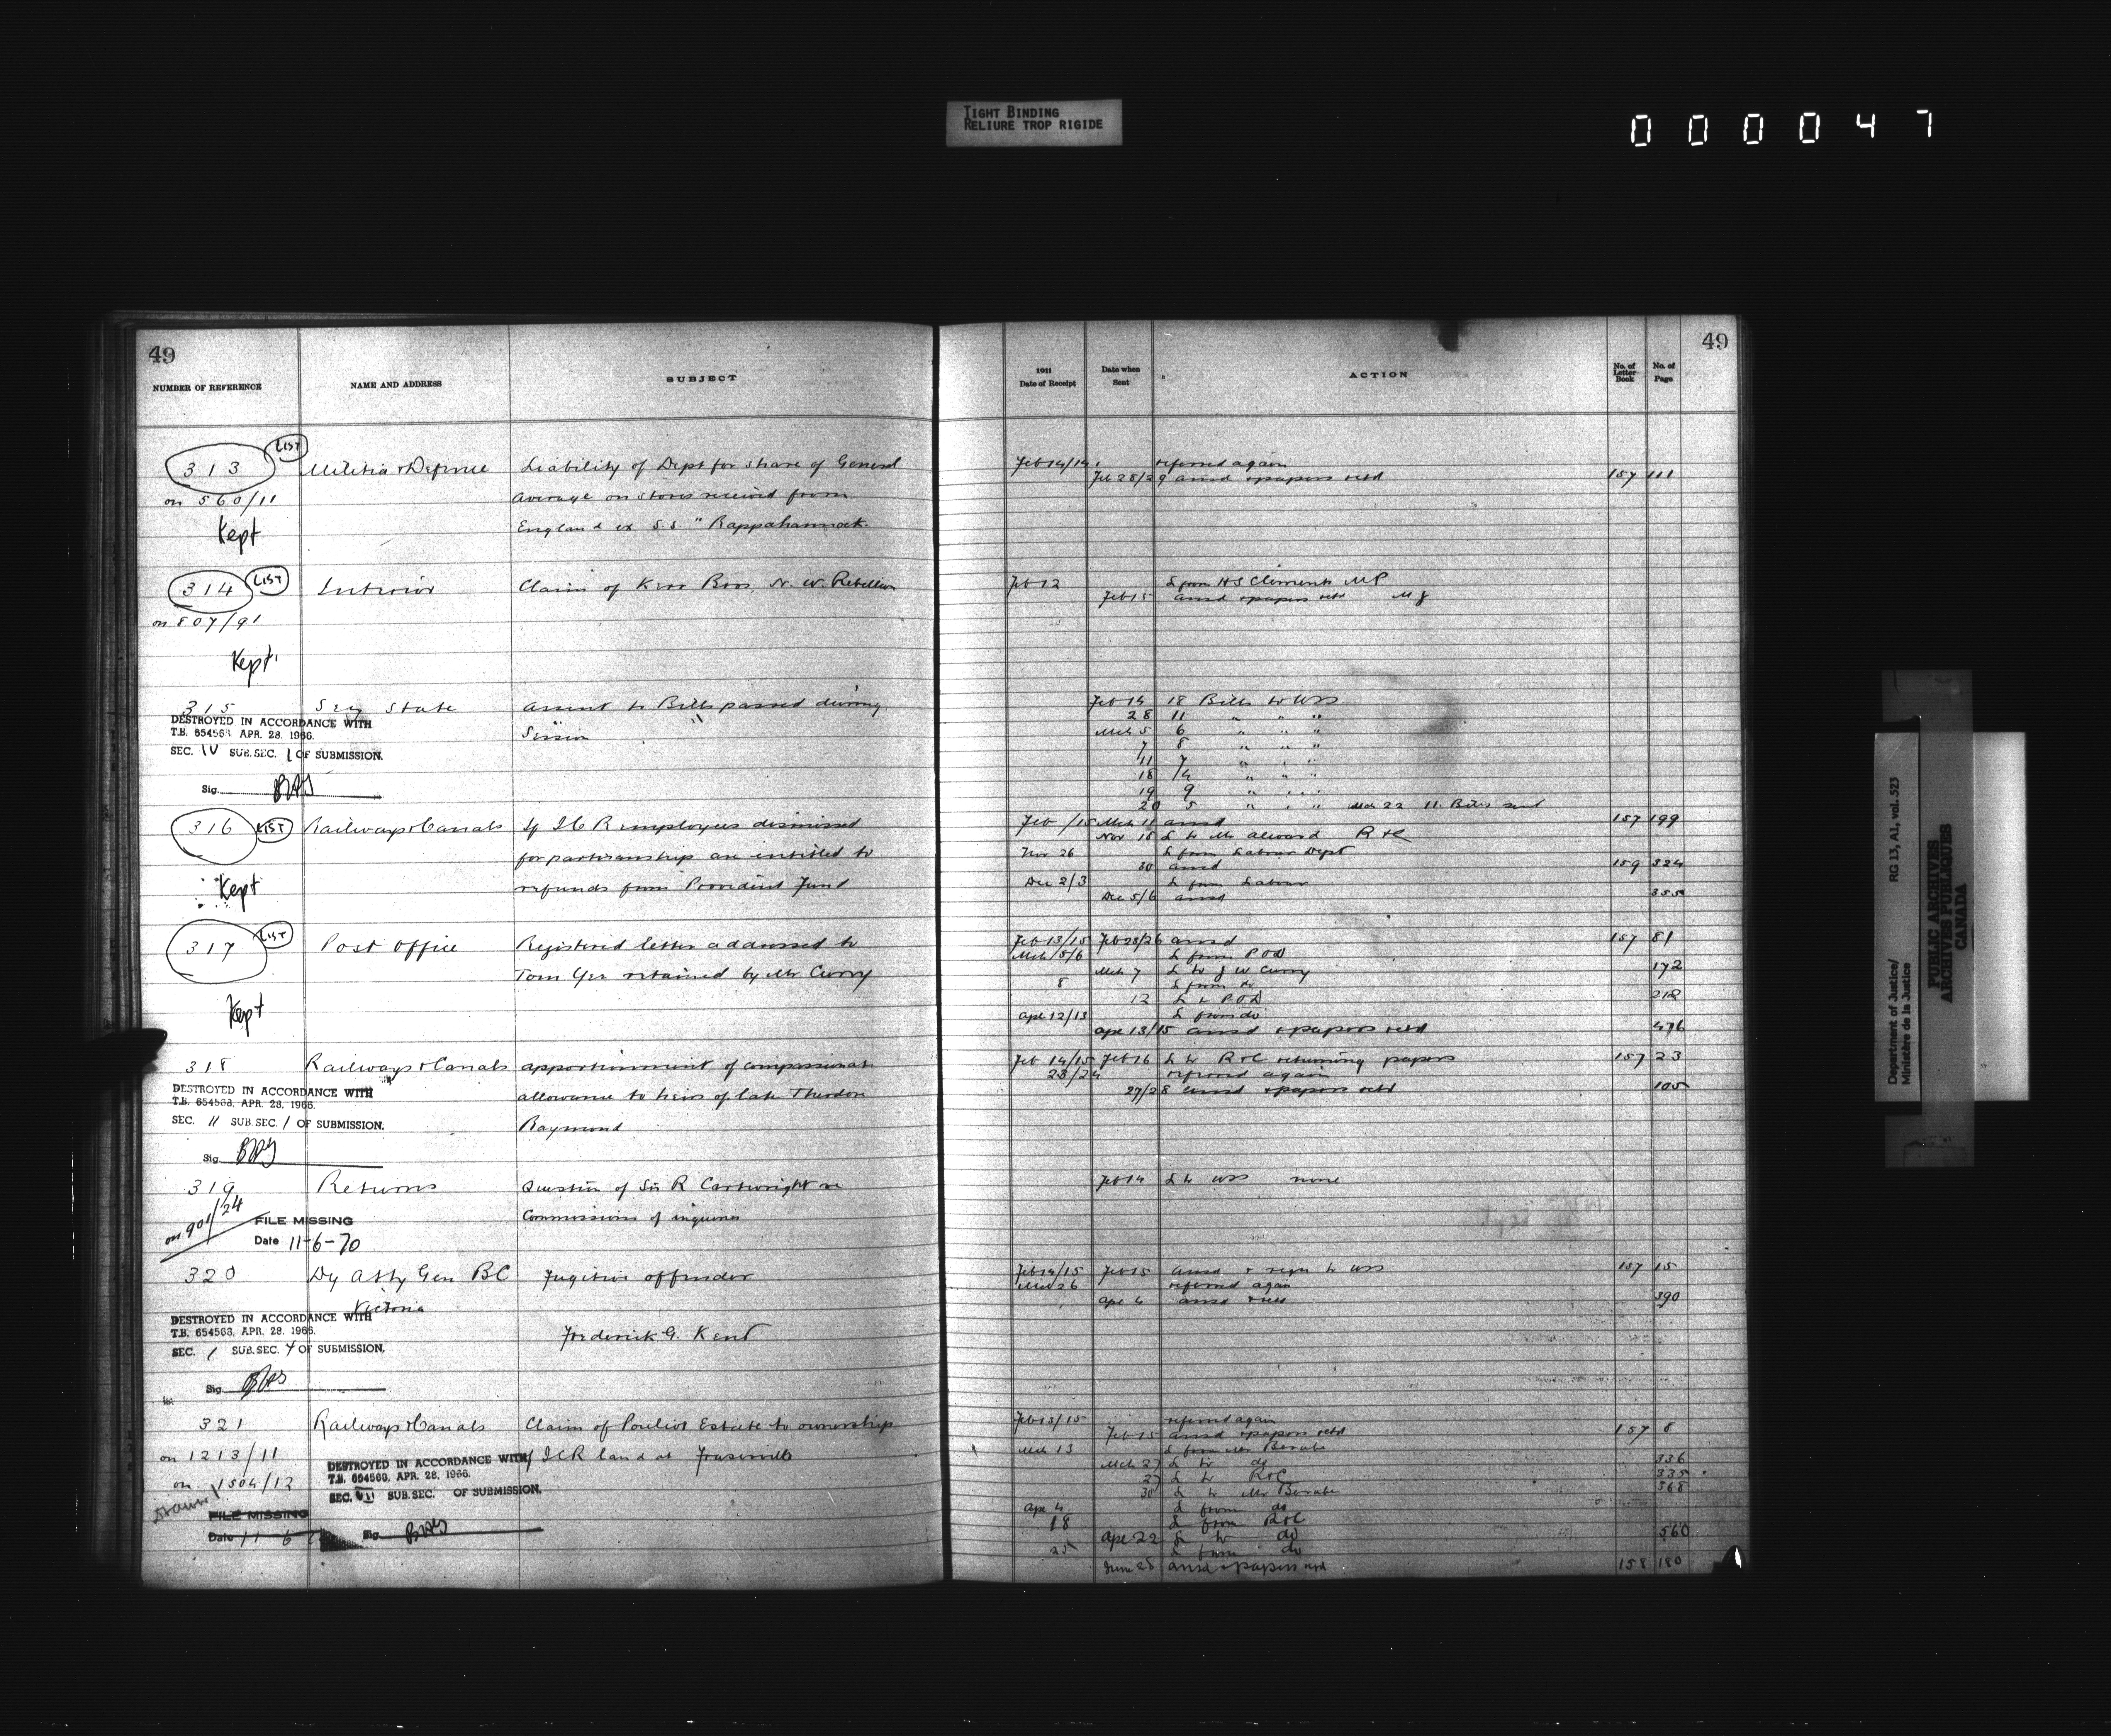 TIGHT BINDING
RELIURE TROP RIGIDE
000047
49
NUMBER OF REFERENCE
NAME AND ADDRESS
SUBJECT
313
LIST
on 560/11
Kept
Militia & Defence
Liability of Dept for share of General
Average on stores received from
England ex S.S. "Rappahannock
314
LIST
on 807/91
Kept
Interior
Claim of Kerr Bros, N. W. Rebellion
315
Secy State
Assent to Bills passed during
Session
DESTROYED IN ACCORDANCE WITH
T.B. 654563 APR. 28. 1966.
SEC. IV SUB.SEC. 1 OF SUBMISSION.
Sig.
316
LIST
Kept
Railways & Canals
If ICR employees dismissed
for partisanship are entitled to
refunds from Provident Fund
317
LIST
Kept
Post Office
Registered letter addressed to
Tom Yee retained by Mr Curry
318
Railways & Canals
apportionment of compassionate
allowance to heirs of late Theodore
Raymond
DESTROYED IN ACCORDANCE WITH
T.B. 654563, APR. 28, 1966.
SEC. 11 SUB.SEC. 1 OF SUBMISSION.
Sig.
319
on 901/24
Returns
Question of Sir R Cartwright re
Commissions of inquiries
FILE MISSING
Date 11-6-70
320
Dy Atty Gen BC
Victoria
Fugitive offender
Frederick G. Kent
DESTROYED IN ACCORDANCE WITH
T.B. 654563, APR. 28. 1966.
SEC. 1 SUB.SEC. 4 OF SUBMISSION.
Sig.
321
on 1213/11
on 1504/12
Railways & Canals
Claim of Pouliot Estate to ownership
of ICR land at Fraserville
DESTROYED IN ACCORDANCE WITH
T.B. 654563, APR. 28. 1966.
SEC. VII SUB.SEC. OF SUBMISSION.
FILE MISSING
Date 11 6
Sig.
49
1911
Date of Receipt
Date when
Sent
ACTION
No. of
Letter
Book
No. of
Page
Feb 14/14 referred again
Feb 28/29 ansd & papers retd 157 111
Feb 12 L from HS Clements MP
Feb 15 ansd & papers retd MJ
Feb 14 18 Bills to USS
28 11 " " "
Mch 5 6 " " "
7 8 " " "
11 7 " " "
18 14 " " "
19 9 " " "
20 5 " " " Mch 22 11 Bills sent
Feb /15 Mch 11 ansd 157 199
Nov 18 L to Mr Alward R & C
Nov 26 L from Labour Dept
30 ansd 159 324
Dec 2/3 L from Labour
Dec 5/6 ansd 355
Feb 13/15 Feb 25/26 ansd 157 81
Mch /5/6 L from POD
Mch 7 L to J W Curry 172
8 L from do
12 L to POD 212
Apl 12/13 L from do
Apl 13/15 ansd & papers retd 476
Feb 14/15 Feb 16 L to R & C returning papers 157 23
23/24 referred again
27/28 ansd & papers retd 105
Feb 14 L to USS none
Feb 14/15 Feb 15 ansd & to USS 157 15
Mch 26 referred again
Apl 4 ansd 390
Feb 13/15 referred again
Feb 15 ansd & papers retd 157 8
Mch 13 L from Mr Berube
Mch 27 L to do 336
27 L to R & C 335
30 L to Mr Berube 368
Apl 4 L from do
18 L from R & C
Apl 22 L to do 560
25 L from do
June 28 ansd & papers retd 158 180
Department of Justice/
Ministère de la Justice
RG 13, A1, vol. 523
PUBLIC ARCHIVES
ARCHIVES PUBLIQUES
CANADA